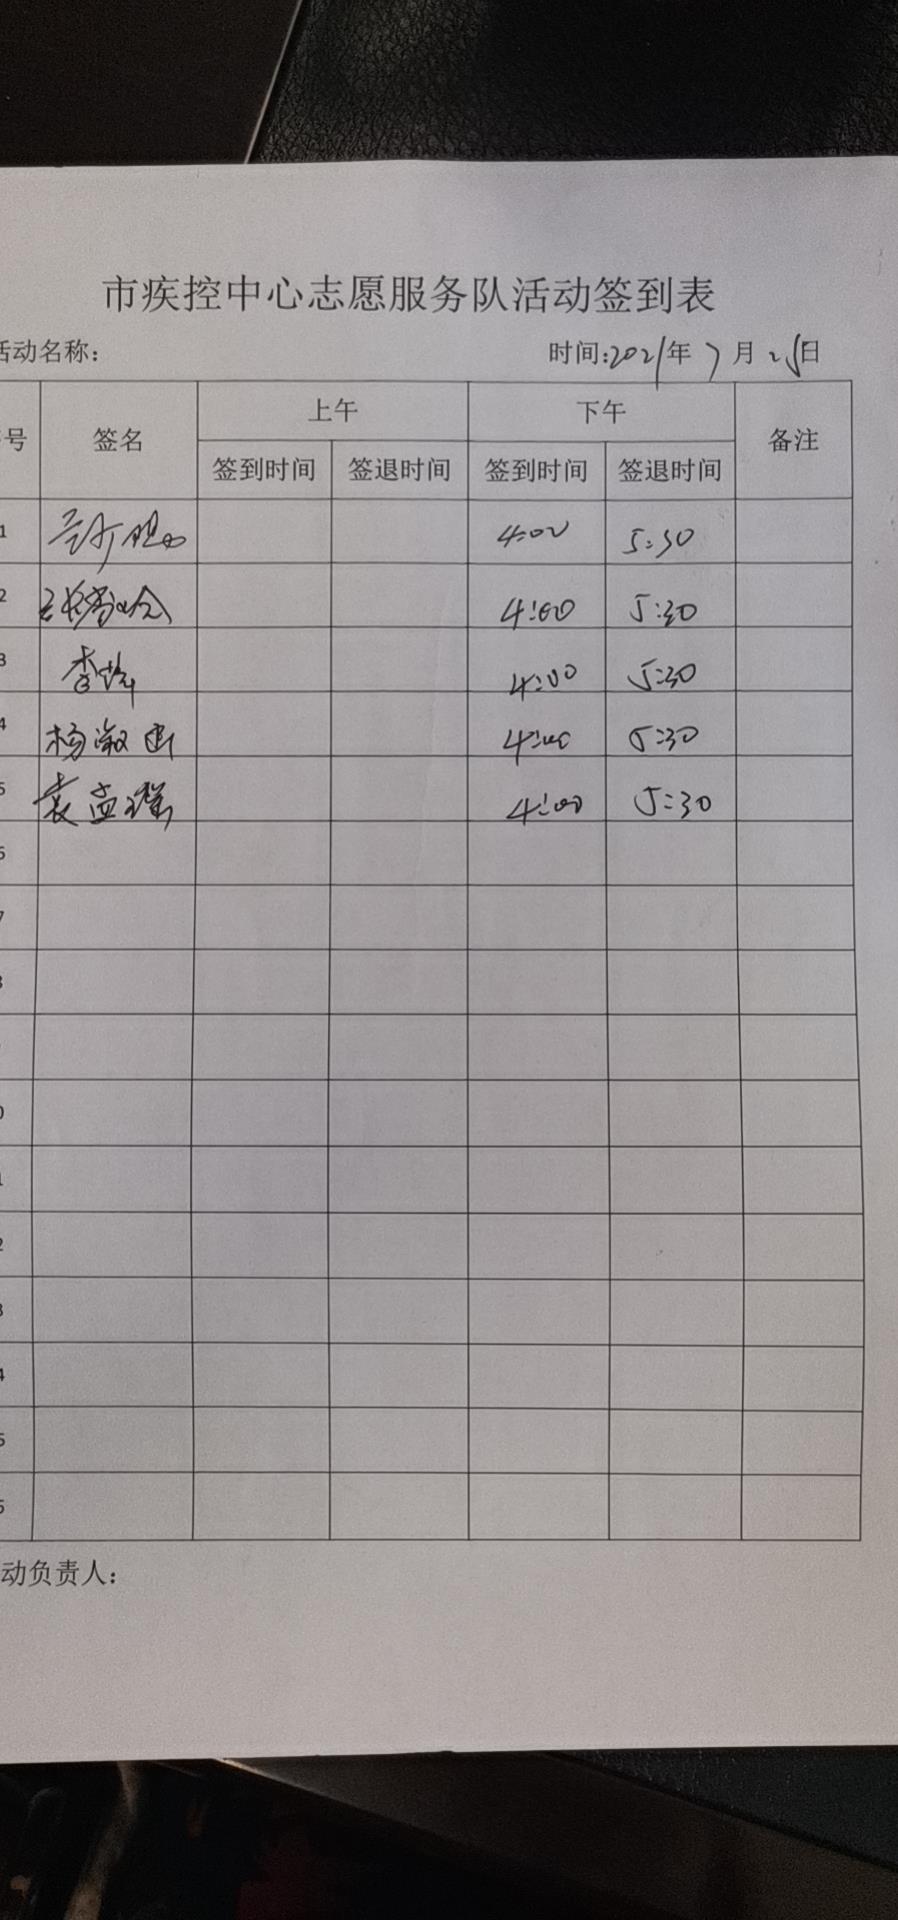 市疾控中心志愿服务队活动签到表
活动名称: 时间:2021年7月25日
号 签名 上午 下午 备注
签到时间 签退时间 签到时间 签退时间
1 4:00 5:30
2 4:00 5:30
3 李 4:00 5:30
4 杨淑 4:00 5:30
5 袁孟瑶 4:00 5:30
6
7
8
0
1
2
3
4
5
6
动负责人: